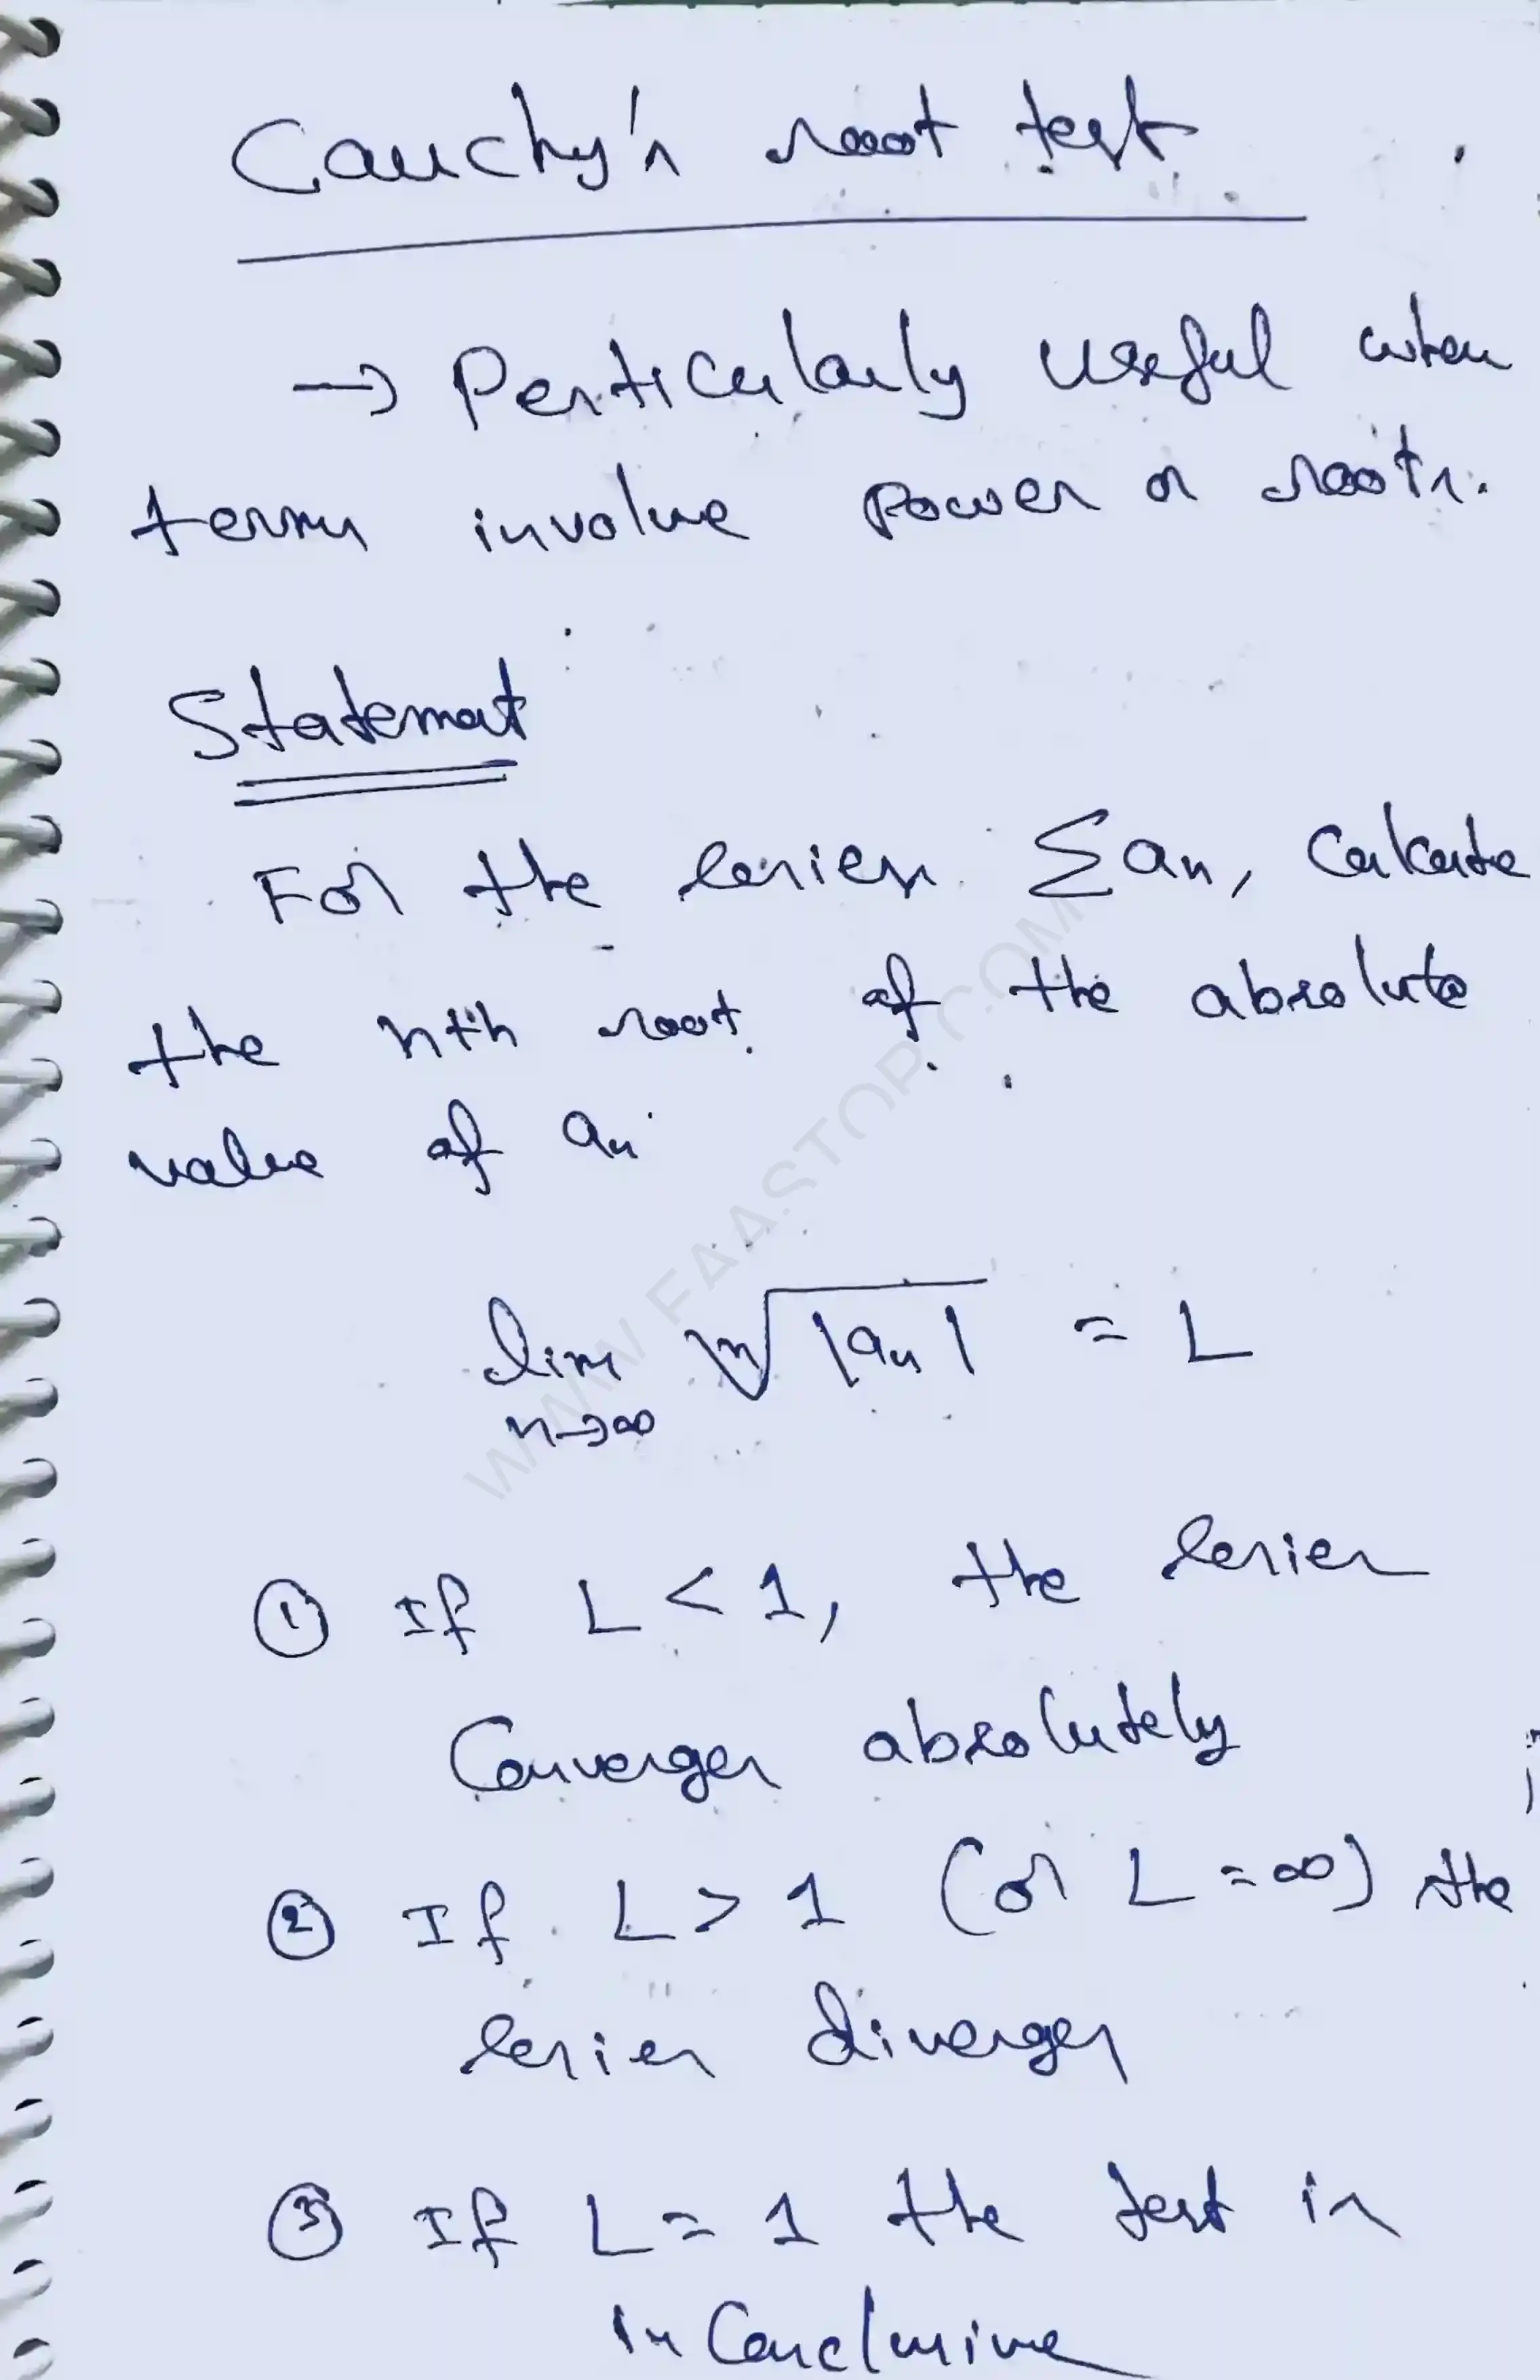 Cauchy's root test
→ Perticularly useful when
terms involve power or roots.
Statement
For the series Σan, Calculate
the nth root of the absolute
value of an
lim n√|an| = L
n→∞
① If L < 1, the series
Converges absolutely
② If L > 1 (or L = ∞) the
series diverges
③ If L = 1 the test is
inConclusive
WWW.FAASTOP.COM